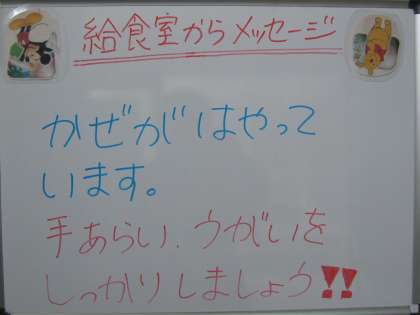 給食室からメッセージ
かぜがはやって
います。
手あらい、うがいを
しっかりしましょう!!